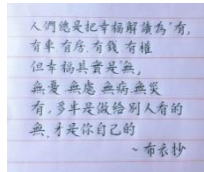 人們總是把幸福解讀為"有,
有車 有房 有錢 有權
但幸福其實是"無,
無憂 無慮 無病 無災
有,多半是做給別人看的
無,才是你自己的
~布衣抄